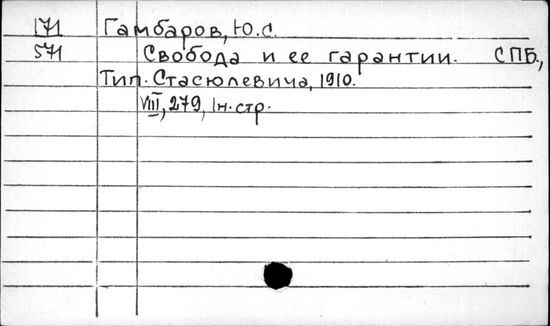 171 Гамбаров, Ю.С.
571 Свобода и ее гарантии. СПБ.,
Тип. Стасюлевича, 1910.
VIII, 279, Iн. стр.